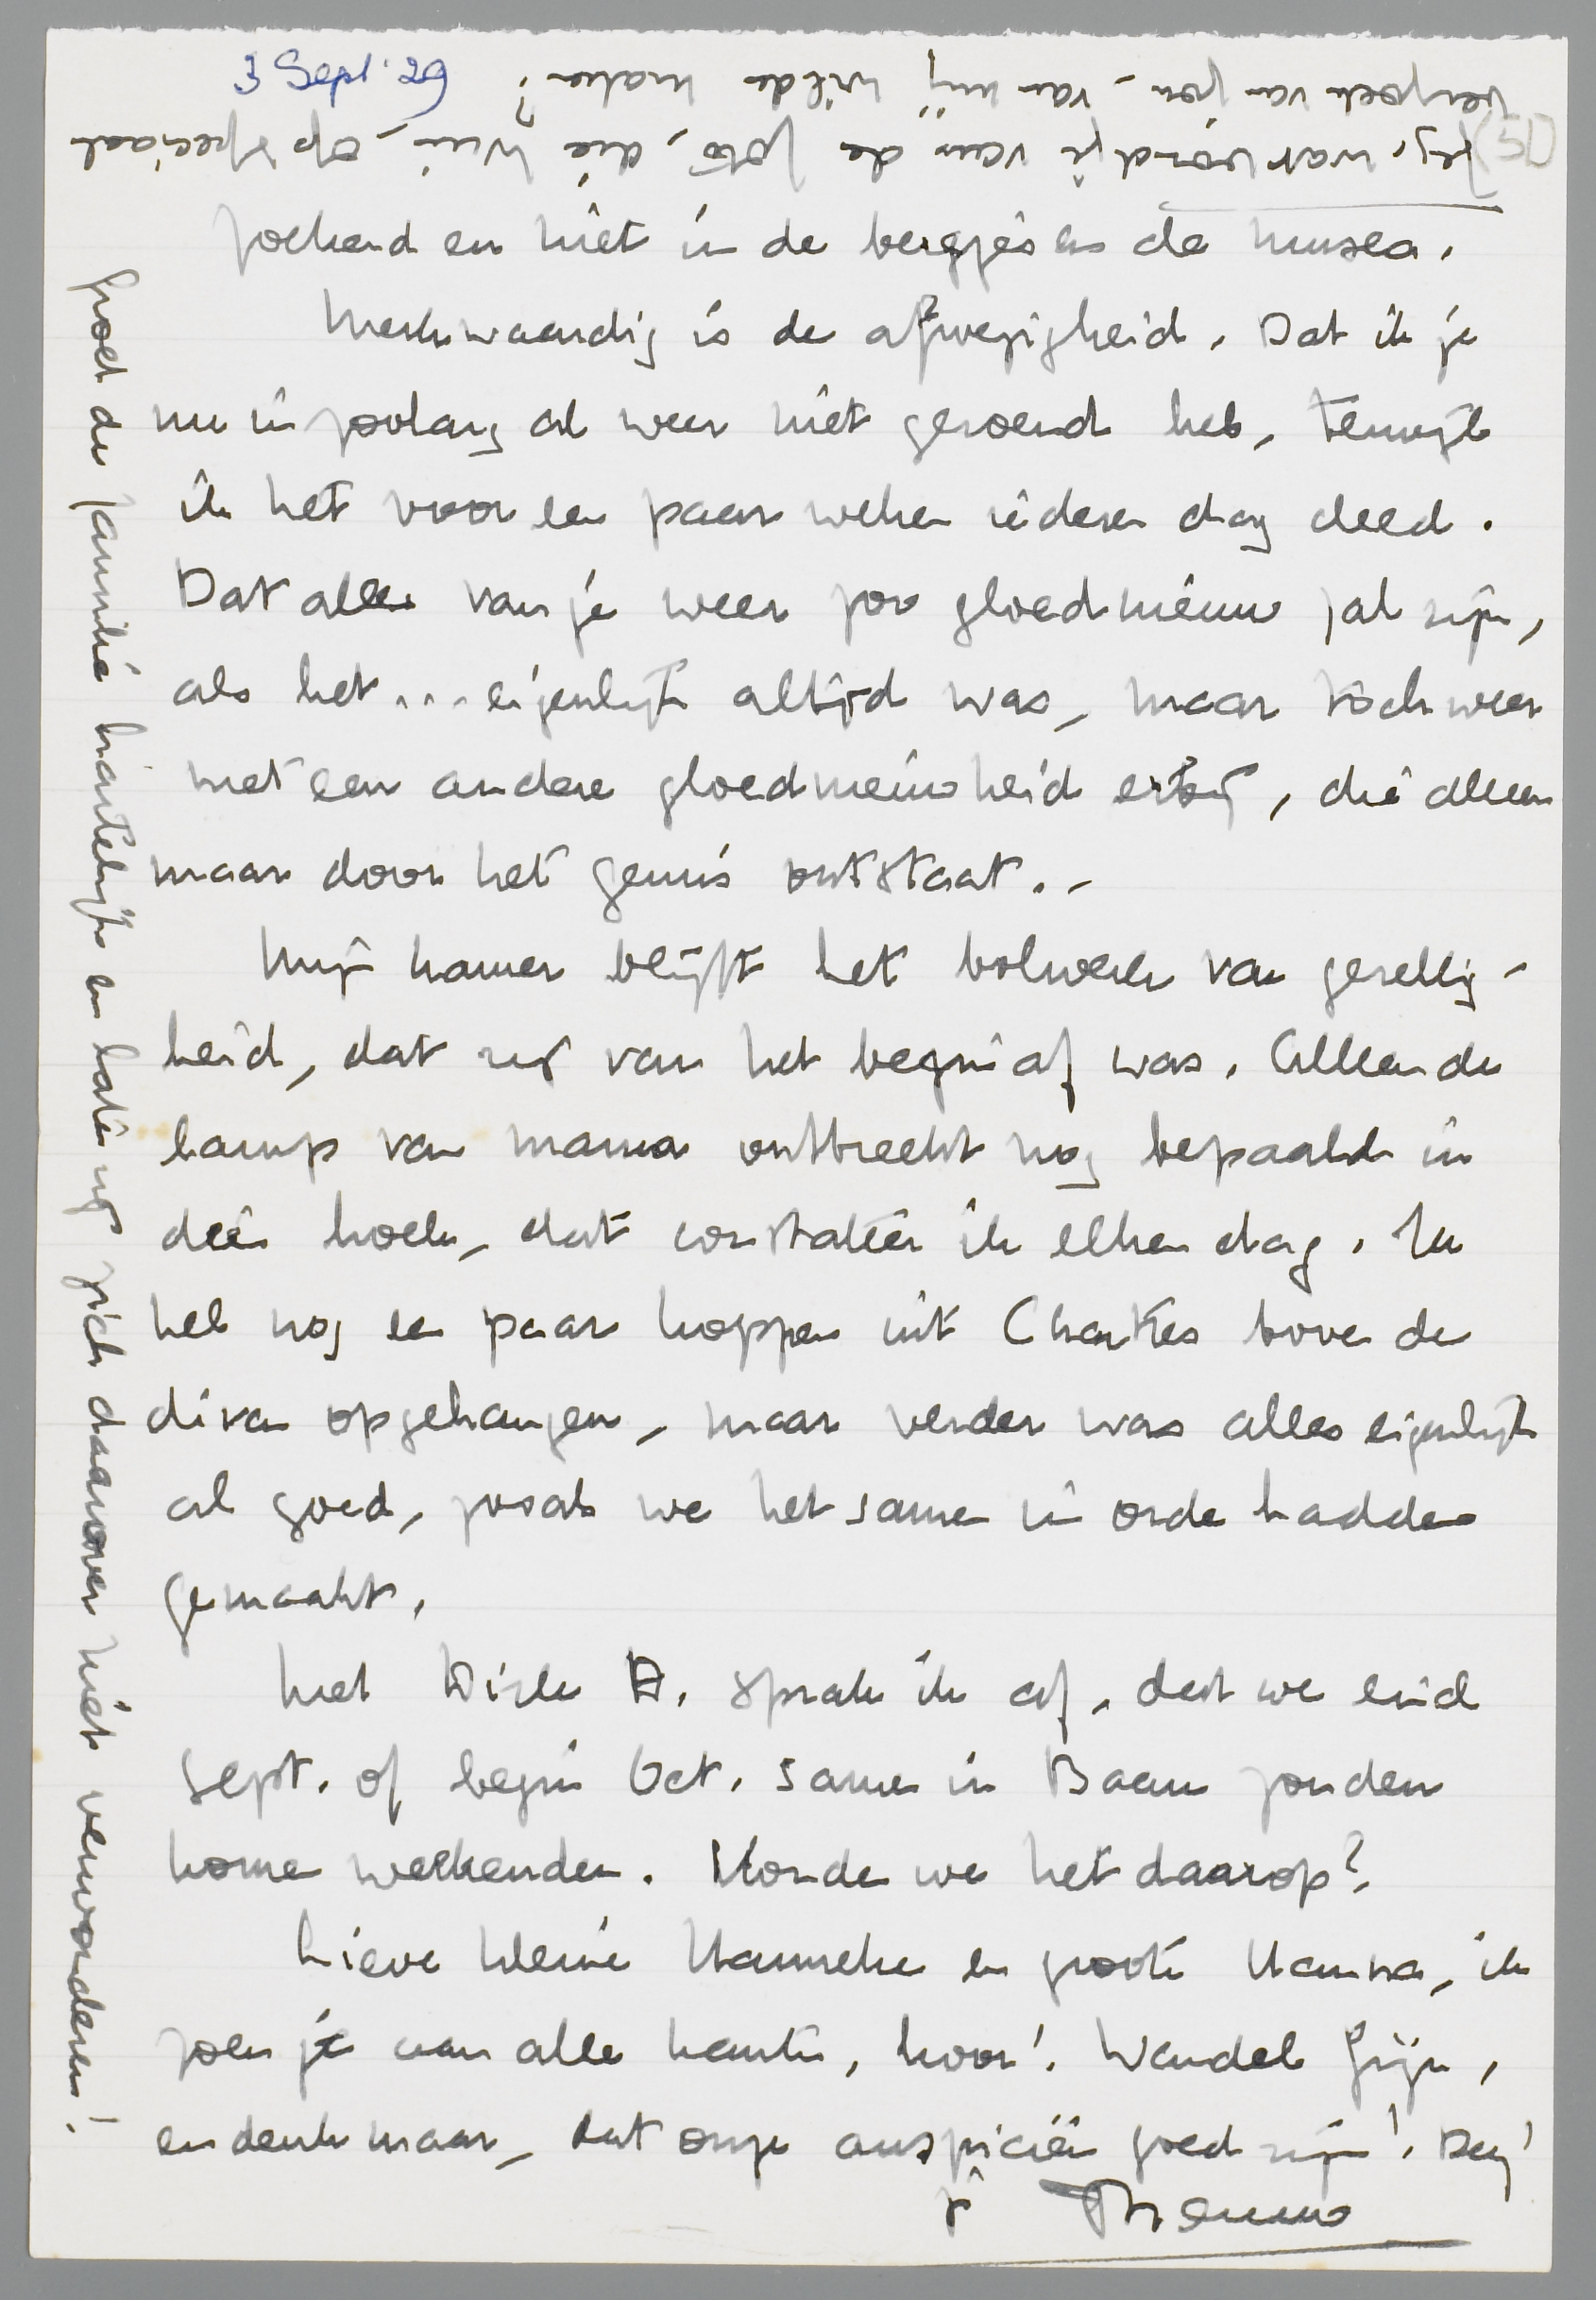 3 Sept. 29
(5D)
Zeg, wat vond je van de foto, die Wim, op speciaal
verzoek van jou, van mij wilde maken?
zoekend en niet in de bergjes en de musea.
Merkwaardig is de afwezigheid. Dat ik je
nu in zoolang al weer niet gezoend heb, terwijl
ik het voor een paar weken iederen dag deed.
Dat alles van je weer zoo gloednieuw zal zijn,
als het... eigenlijk altijd was, maar toch weer
met een andere gloednieuwheid erbij, die alleen
maar door het gemis ontstaat.-
Mijn kamer blijft het bolwerk van gezellig-
heid, dat zij van het begin af was. Alleen de
lamp van mama ontbreekt nog bepaald in
dien hoek, dat constateer ik elken dag. Ik
heb nog een paar koppen uit Chartres boven de
divan opgehangen, maar verder was alles eigenlijk
al goed, zooals we het samen in orde hadden
gemaakt.
Met Dirk D. sprak ik af, dat we eind
Sept. of begin Oct. samen in Baarn zouden
komen weekenden. Houden we het daarop?
Lieve kleine Hanneke en groote Hanna, ik
zoen je aan alle kanten, hoor! Wandel fijn,
en denk maar, dat onze auspiciën goed zijn! Dag!
je Menno
Groet de familie hartelijk en laten zij zich daarover niet verwonderen!